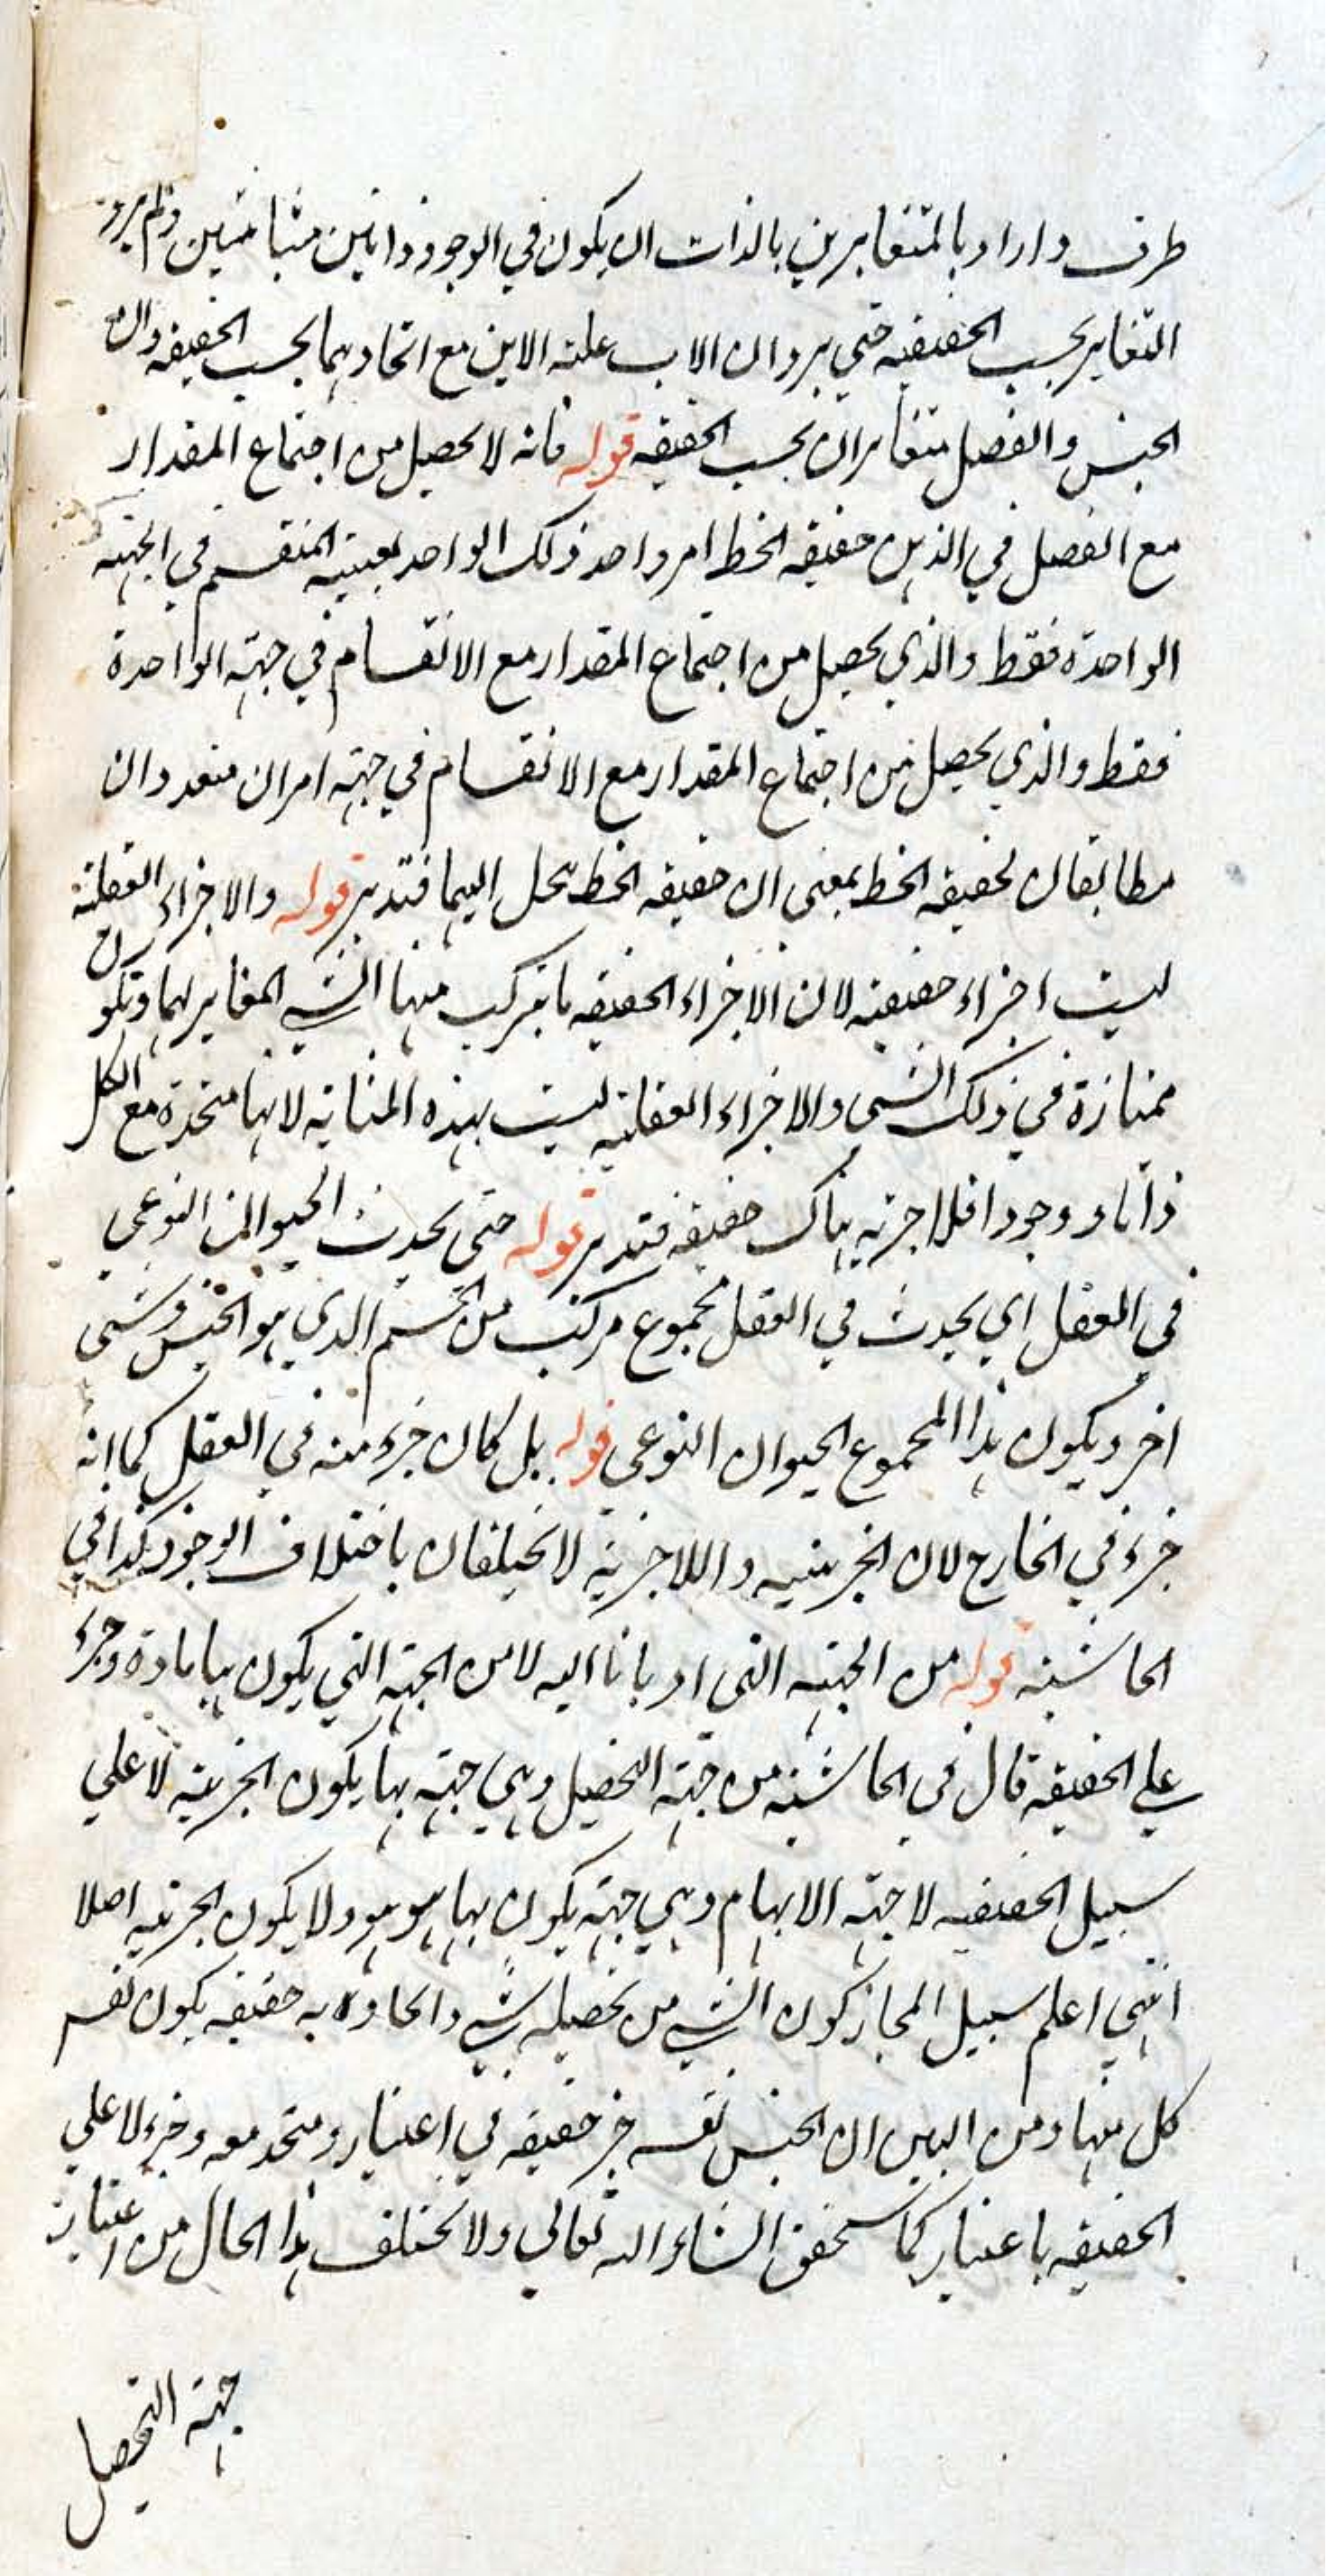 طرف واراد بالمتغايرين بالذات ان يكون في الوجود ذاتين متباينين ولم يرد
التغاير بحسب الحقيقة حتي يرد ان الاب علة الابن مع اتحادهما بحسب الحقيقة وان
الجنس والفصل متغايران بحسب الحقيقة قوله فانه لا يحصل من اجتماع المقدار
مع الفصل في الذهن حقيقة الخط امر واحد ذلك الواحد بعينه المنقسم في الجهة
الواحدة فقط والذي يحصل من اجتماع المقدار مع الانقسام في جهة الواحدة
فقط والذي يحصل من اجتماع المقدار مع الانقسام في جهة امران متعددان
مطابقان لحقيقة الخط بمعنى ان حقيقة الخط تحل اليهما فتدبر قوله والاجزاء العقلية
ليست اجزاء حقيقة لان الاجزاء الحقيقة ما يتركب منها الشي المغاير لهما وتكون
ممتازة في ذلك الشي والاجزاء العقلية ليست بهذه المثابة لانها متحدة مع الكل
ذاتا ووجودا فلا جزئية هناك حقيقة فتدبر قوله حتى يحدث الحيوان النوعي
في العقل اي يحدث في العقل مجموع مركب من الجسم الذي هو الجنس وشئ
اخر ويكون هذا المجموع الحيوان النوعي قوله بل كان جزء منه في العقل كما انه
جزء في الخارج لان الجزئية واللاجزئية لا يختلفان باختلاف الوجود كذا في
الحاشية قوله من الجهة التى اومانا اليه لا من الجهة التي يكون بها مادة وجزء
علي الحقيقة قال في الحاشية من جهة التحصيل وهي جهة بها يكون الجزئية لا علي
سبيل الحقيقة لا جهة الابهام وهي جهة يكون بها هو هو ولا يكون الجزئية اصلا
انتهي اعلم سبيل المجاز كون الشي من تحصيله بشي واتحاده به حقيقة يكون نفس
كل منها ومن البين ان الجنس نفسه جز حقيقة في اعتبار ومتحد معه وجزء لا علي
الحقيقة باعتبار كما سيحقق انشاء الله تعالي ولا يختلف هذا الحال من اعتبار
جهة التحصيل